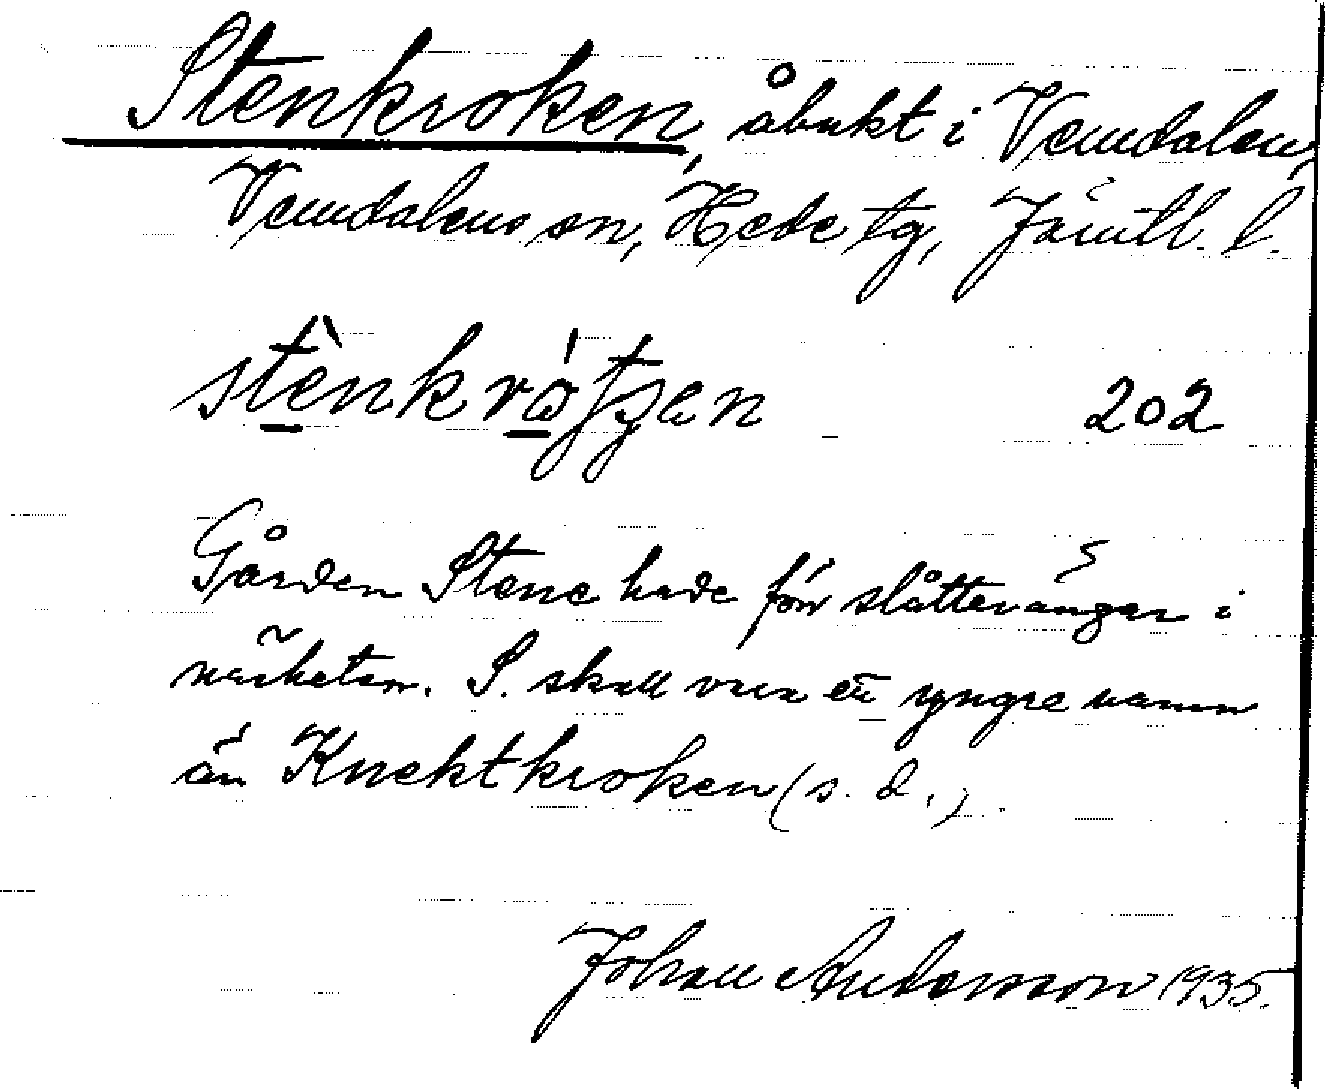 Stenkroken, åbukt i Vemdalen,
Vemdalens sn, Hede tg, Jämtl. l.
202
Gården Stene hade förr slåtteränger i
närheten. S. skall vara ett yngre namn
än Knektkroken (s. d.).
Johan Andersson 1935.